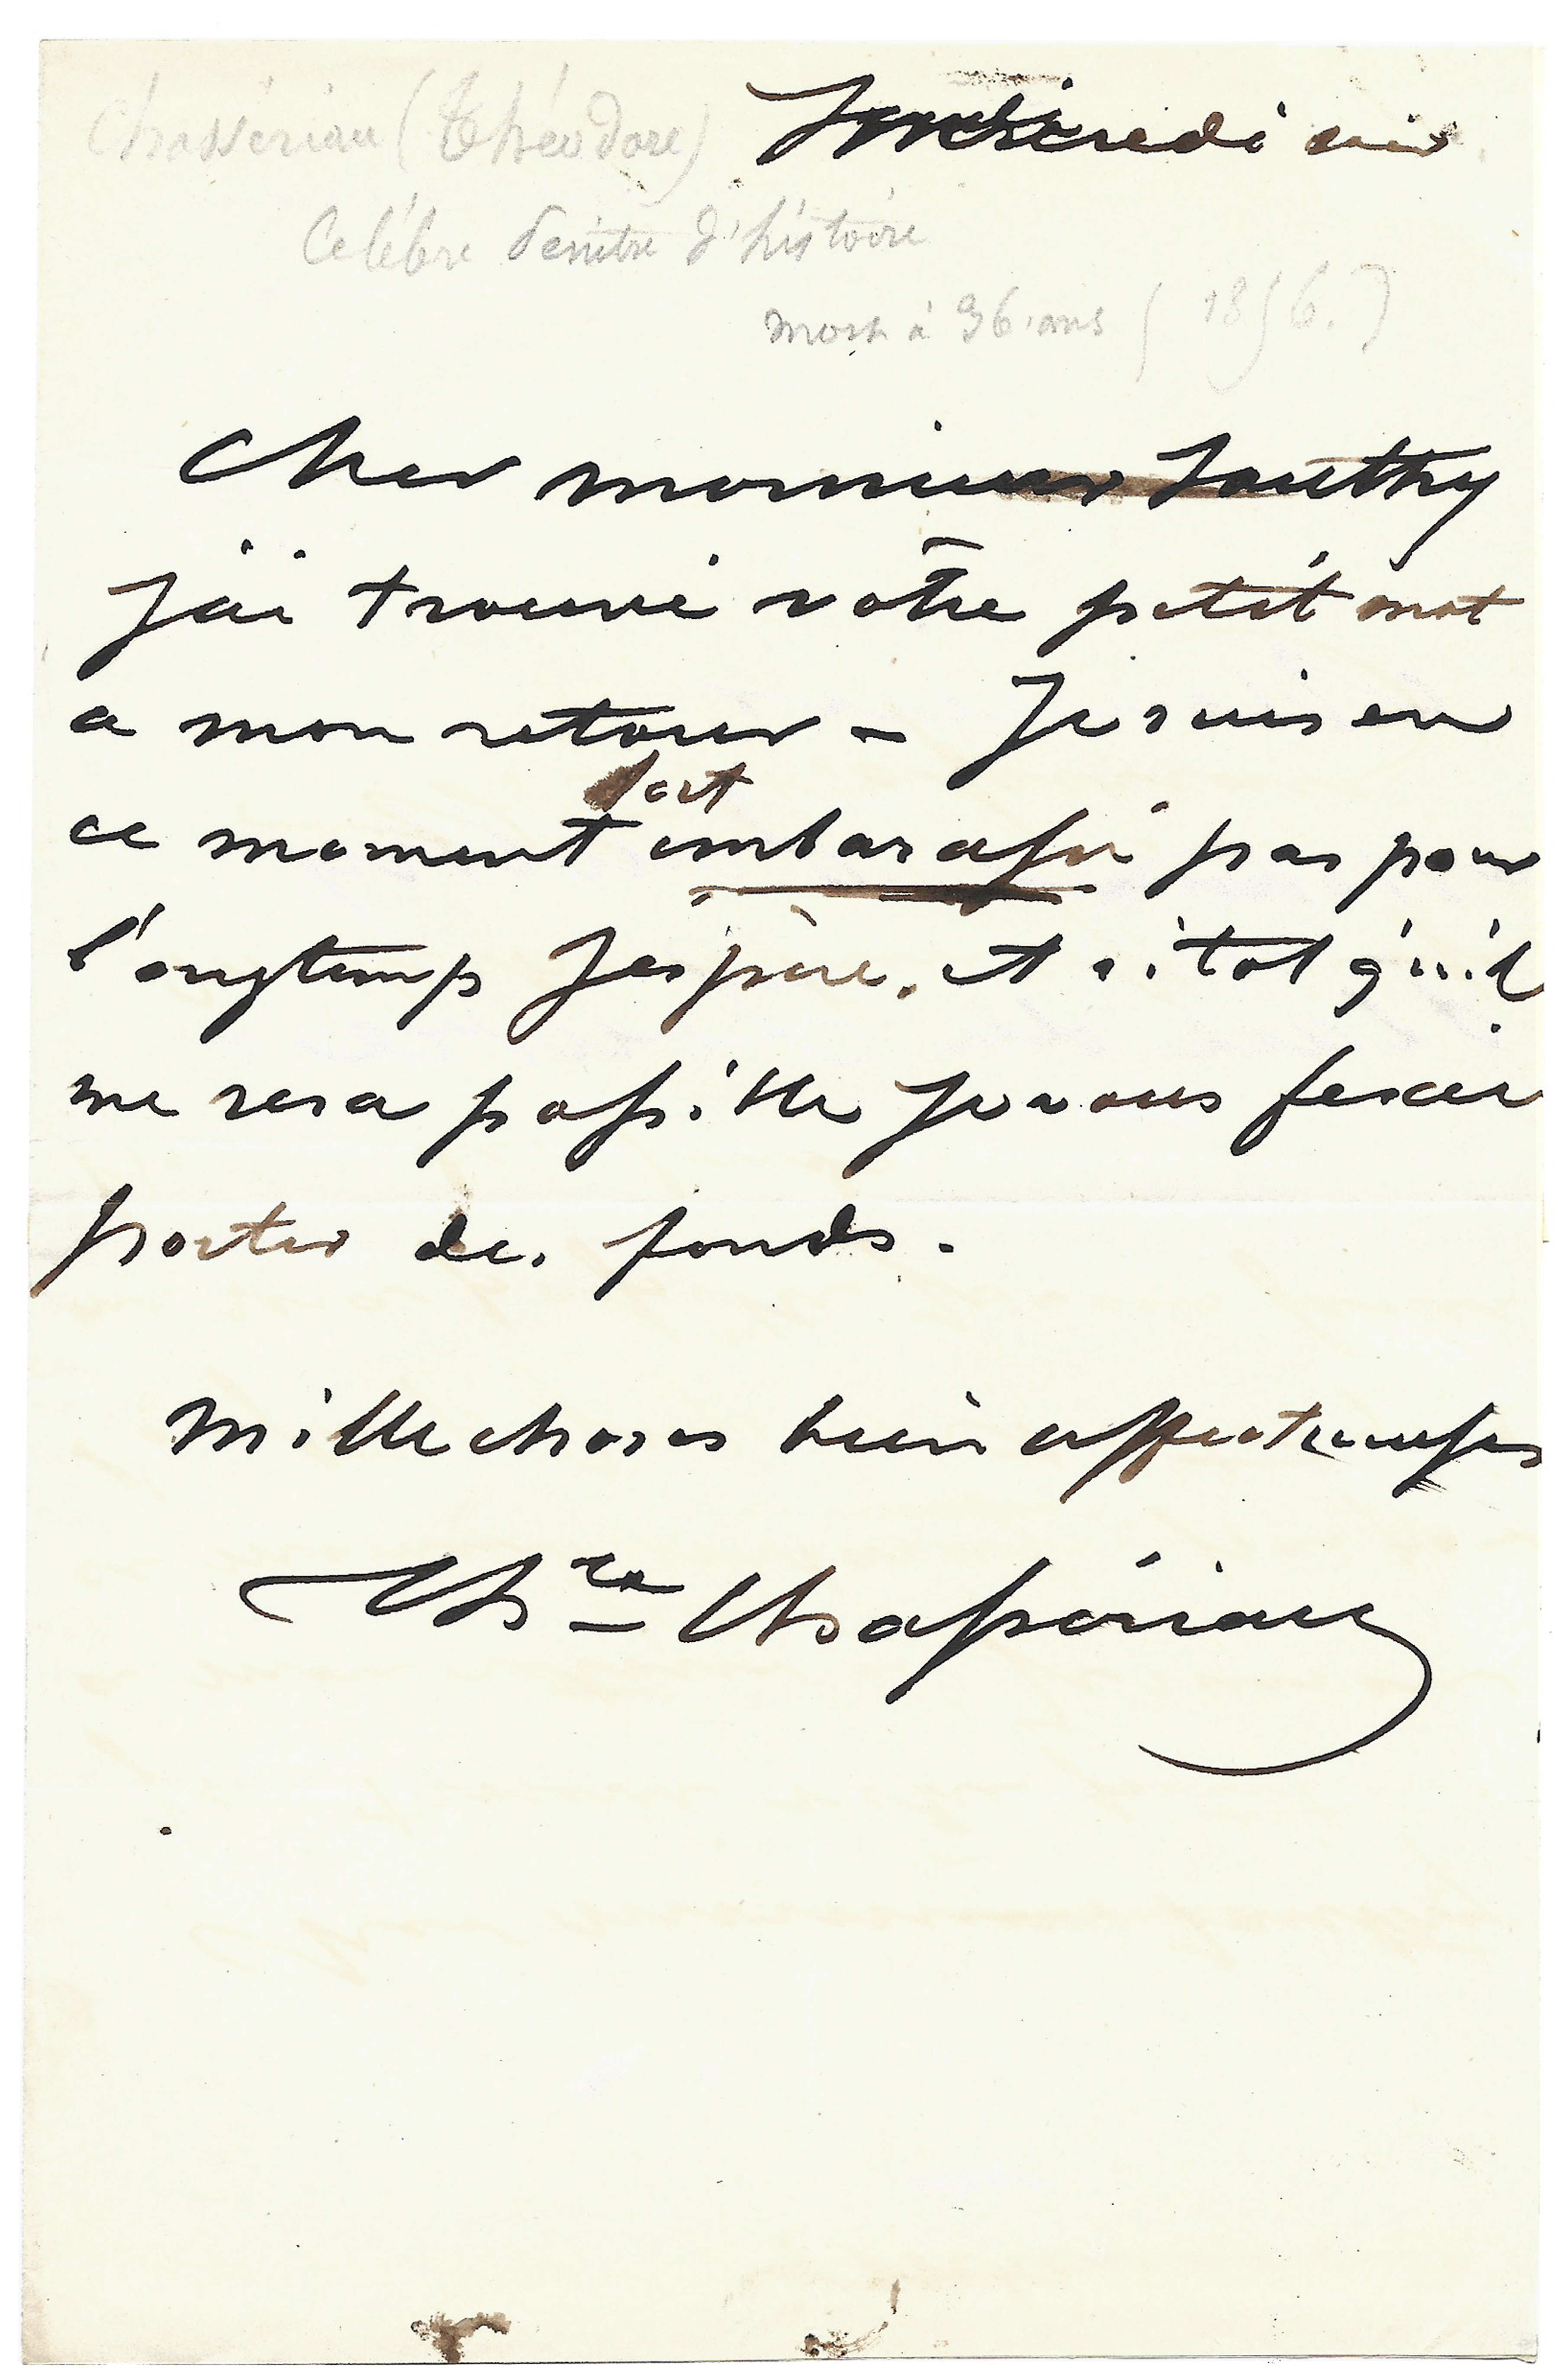 Chassériau (Théodore)
Vendredi soir
Celèbre Peintre d'histoire
mort à 36 ans (1856.)
Cher monsieur Southy
j'ai trouvé vôtre petit mot
a mon retour - Je suis en
ce moment fort embarassé pas pour
l'ongtemp J'espère, et sitot qu'il
me sera possible Je vous ferai
porter des fonds.
Mille choses bien affectueuses
Thre Chassériau